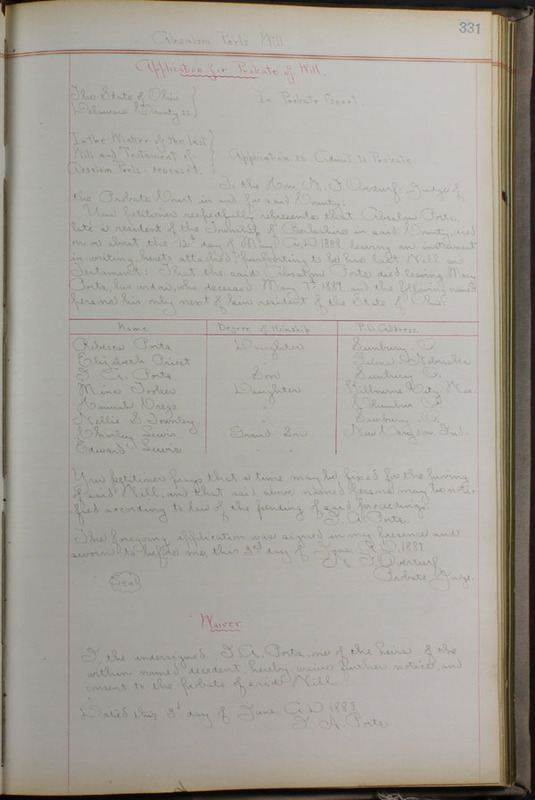 331
Absalom Ports Will
Application for Probate of Will.
The State of Ohio
Delaware County ss.
In Probate Court.
In the Matter of the last
Will and Testament of
Absalom Ports deceased.
Application to Admit to Probate
To the Hon. Judge of
the Probate Court in and for said County.
Your petitioner respectfully represents that Absalom Ports,
late a resident of the Township of Berkshire in said County, died
on or about the 12th day of May A.D. 1888 leaving an instrument
in writing, hereto attached, purporting to be his last Will and
Testament: That the said Absalom Ports died leaving Mary
Ports, his widow, who deceased May 7th 1889 and the following named
persons his only next of kin resident of the State of Ohio.
Name Degree of Kinship P.O. Address
Rebecca Ports Daughter Sunbury O.
Elizabeth Nebraska
F. A. Ports Son Sunbury O.
Daughter Kilbourne City
Hannah Columbus O.
Nellie S. Townley Sunbury O.
Charley Lewis Grand Son
Edward Lewis
Your petitioner prays that a time may be fixed for the proving
of said Will, and that said above named persons may be noti-
fied according to law of the pending of said proceedings.
F. A. Ports
The foregoing application was signed in my presence and
sworn to before me, this 3d day of June, A.D. 1889
Probate Judge.
Seal
Waiver
I, the undersigned F. A. Ports, one of the heirs of the
within named decedent, hereby waive further notice, and
consent to the probate of said Will.
Dated this 3d day of June A.D. 1889
F. A. Ports